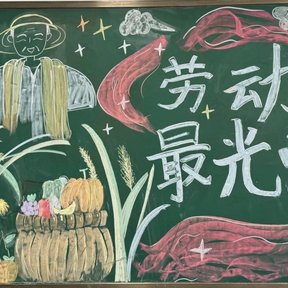 劳动
最光